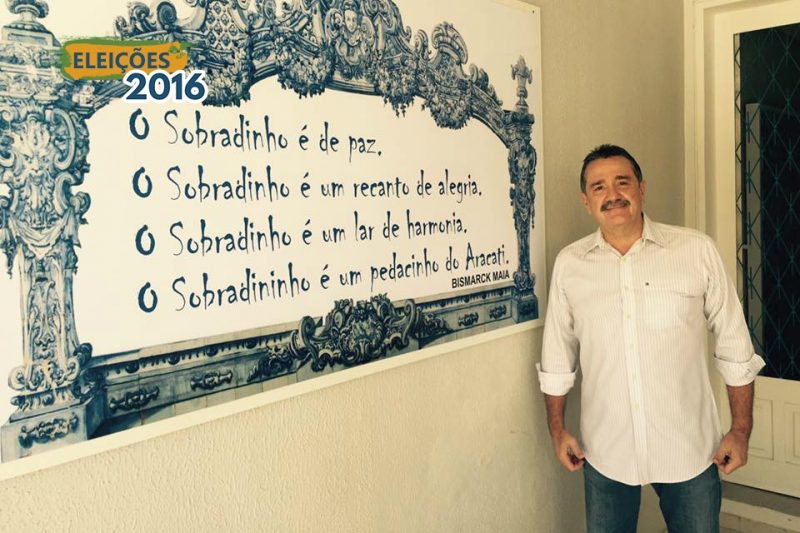 ELEIÇÕES
2016
O Sobradinho é de paz.
O Sobradinho é um recanto de alegria.
O Sobradinho é um lar de harmonia.
O Sobradininho é um pedacinho do Aracati.
BISMARCK MAIA